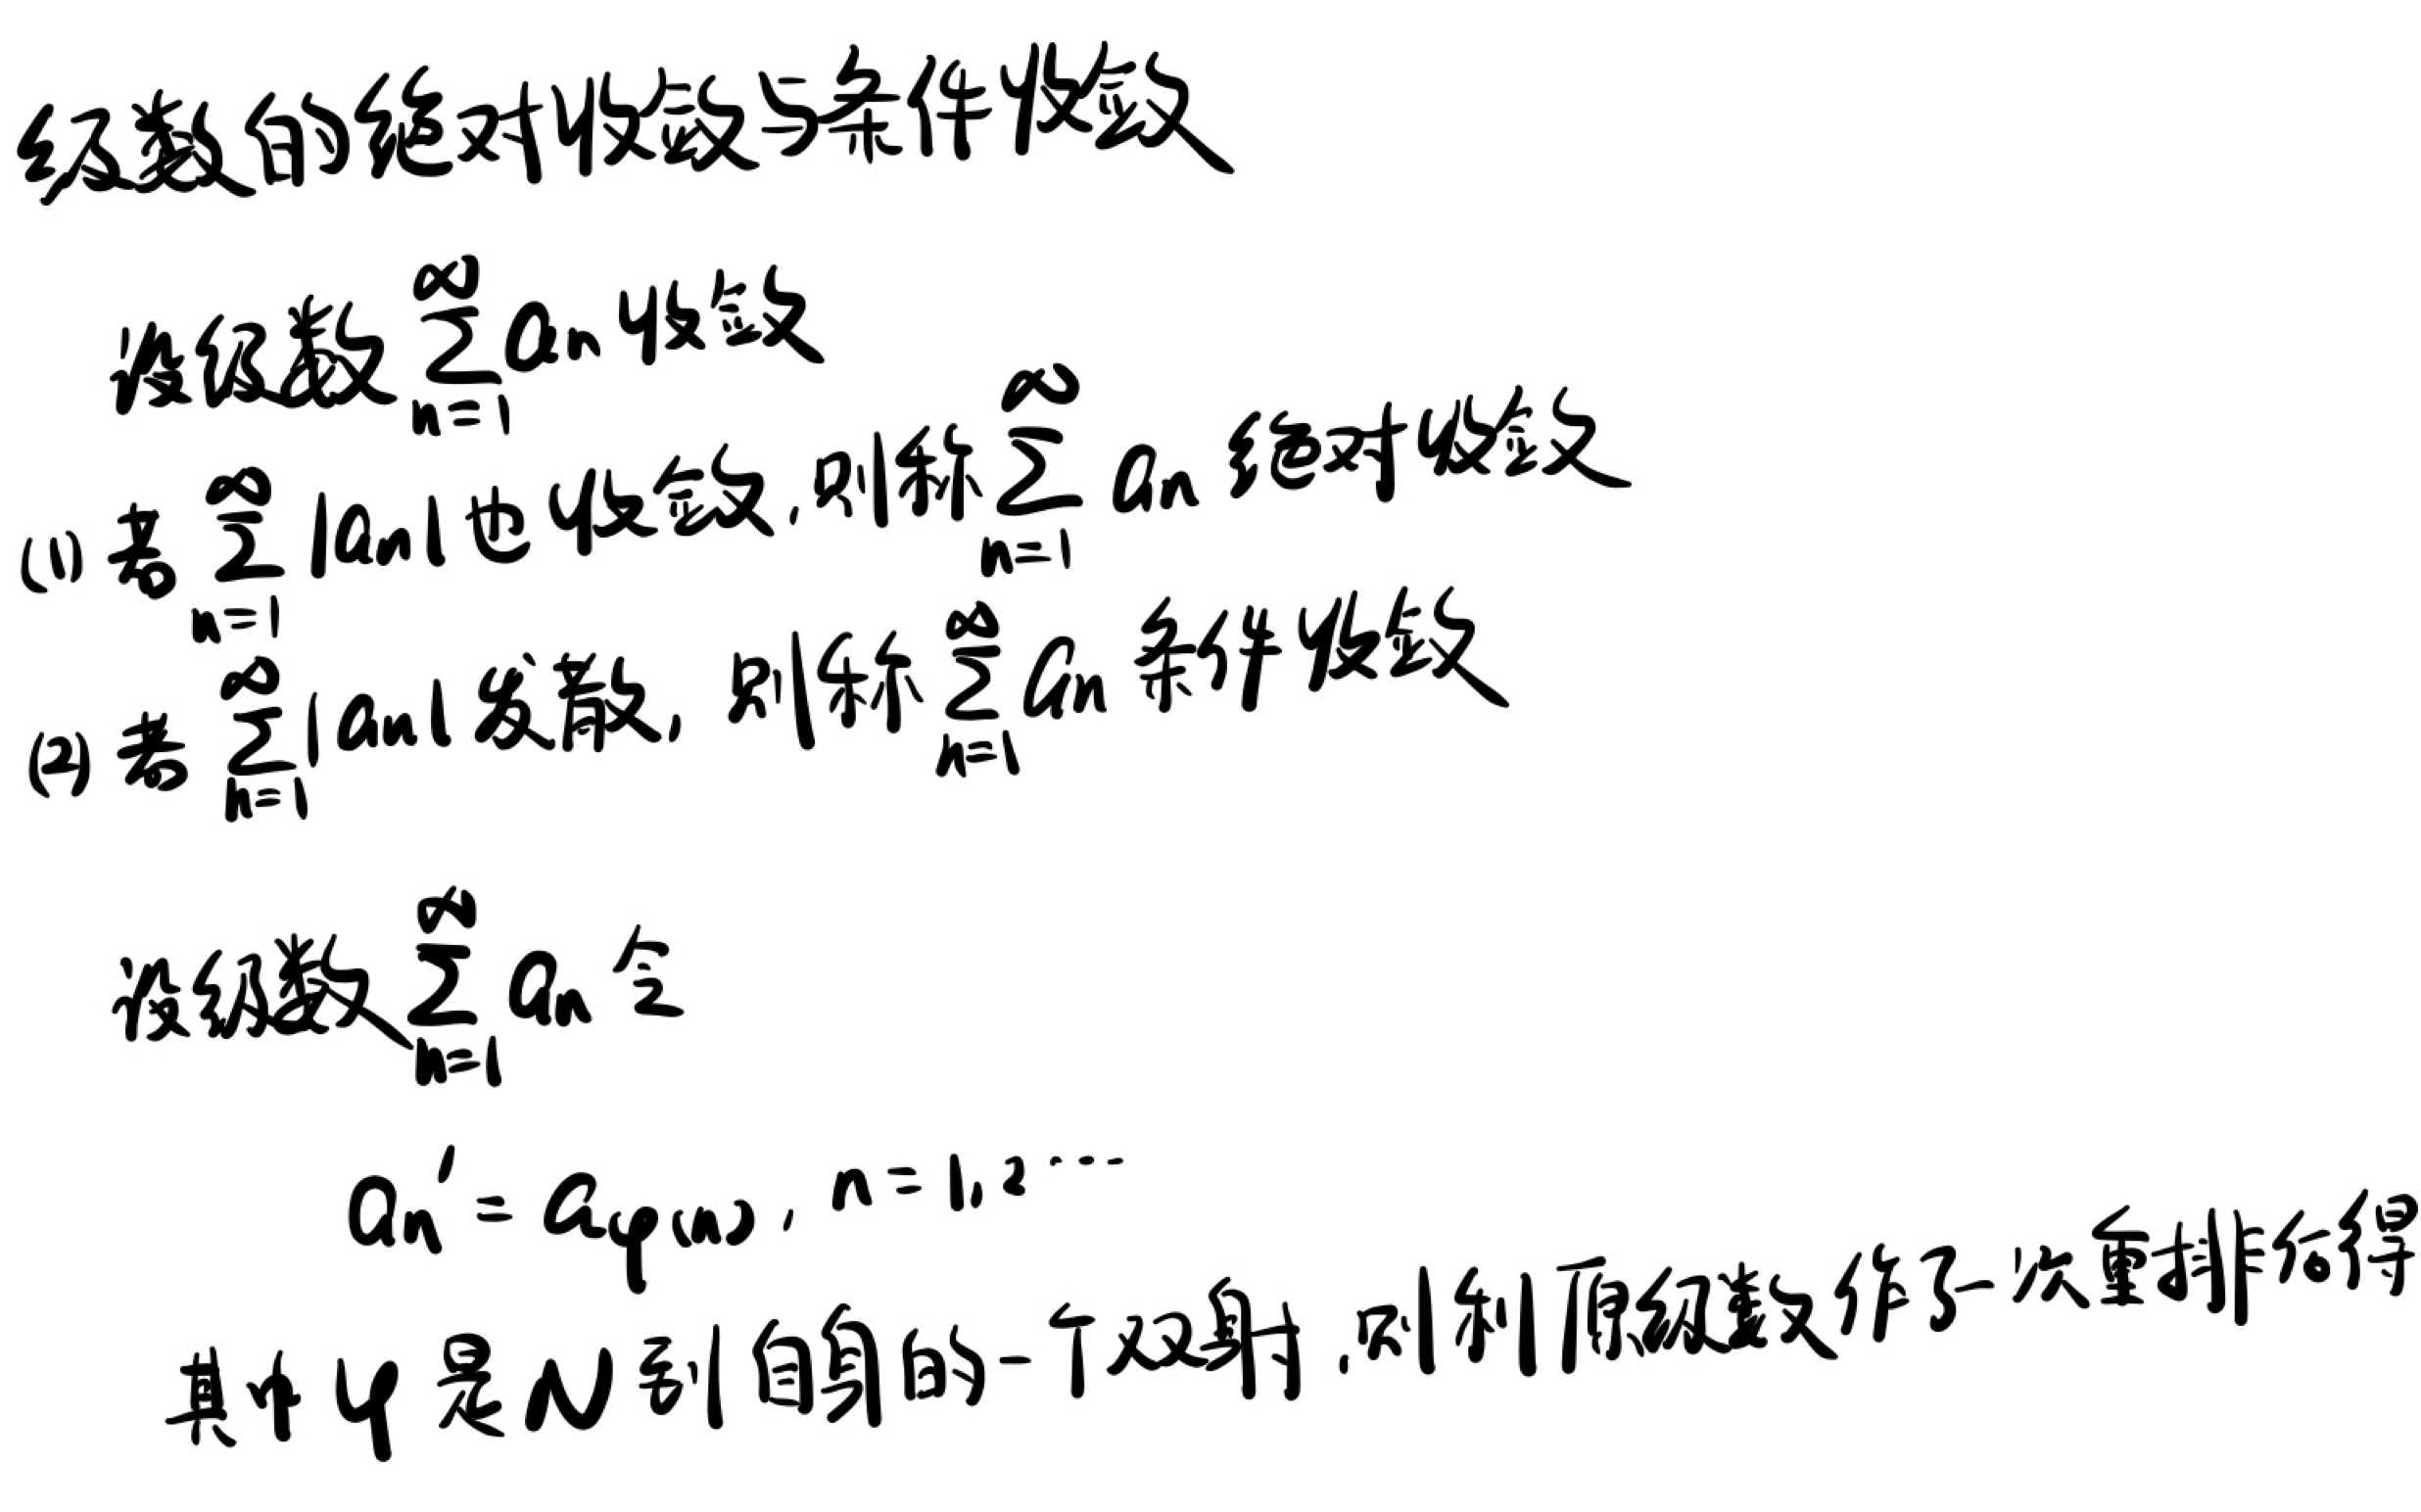 级数的绝对收敛与条件收敛
设级数 $\sum_{n=1}^{\infty} a_n$ 收敛
(1) 若 $\sum_{n=1}^{\infty} |a_n|$ 也收敛,则称 $\sum_{n=1}^{\infty} a_n$ 绝对收敛
(2) 若 $\sum_{n=1}^{\infty} |a_n|$ 发散,则称 $\sum_{n=1}^{\infty} a_n$ 条件收敛
设级数 $\sum_{n=1}^{\infty} a_n$ 令
$a_n' = a_{\varphi(n)}, n=1,2\cdots$
其中 $\varphi$ 是 N 到自身的一个双射,则利原级数作了一次重排后得